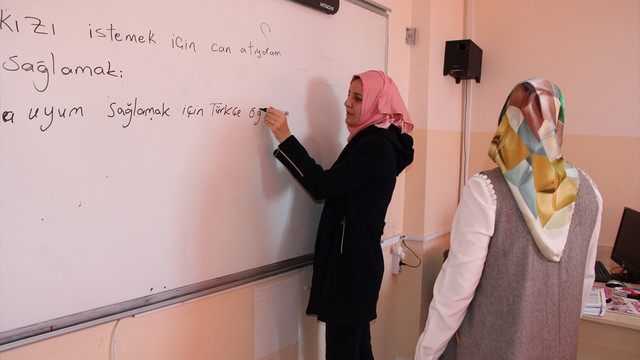 HITACHI
KIZI istemek için can atıyorum
Sağlamak:
a uyum Sağlamak için Türkçe öğ